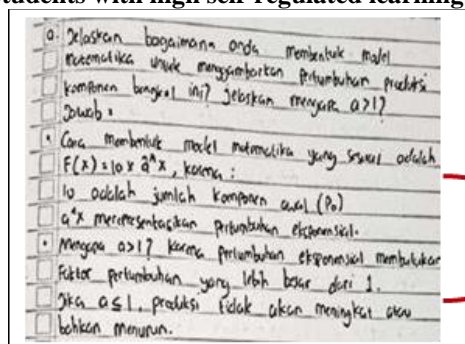 tudents with high self-regulated learning
a. Jelaskan bagaimana anda membentuk model
matematika untuk menggambarkan pertumbuhan produksi
komponen bengkel ini? Jelaskan mengapa a>1?
Jawab :
• Cara membentuk model matematika yang sesuai adalah
F(x) = 10 x a^x, karena :
10 adalah jumlah komponen awal (P₀)
a^x merepresentasikan pertumbuhan eksponensial.
• Mengapa a>1? karena pertumbuhan eksponensial membutuhkan
Faktor pertumbuhan yang lebih besar dari 1.
Jika a ≤ 1, produksi tidak akan meningkat atau
bahkan menurun.